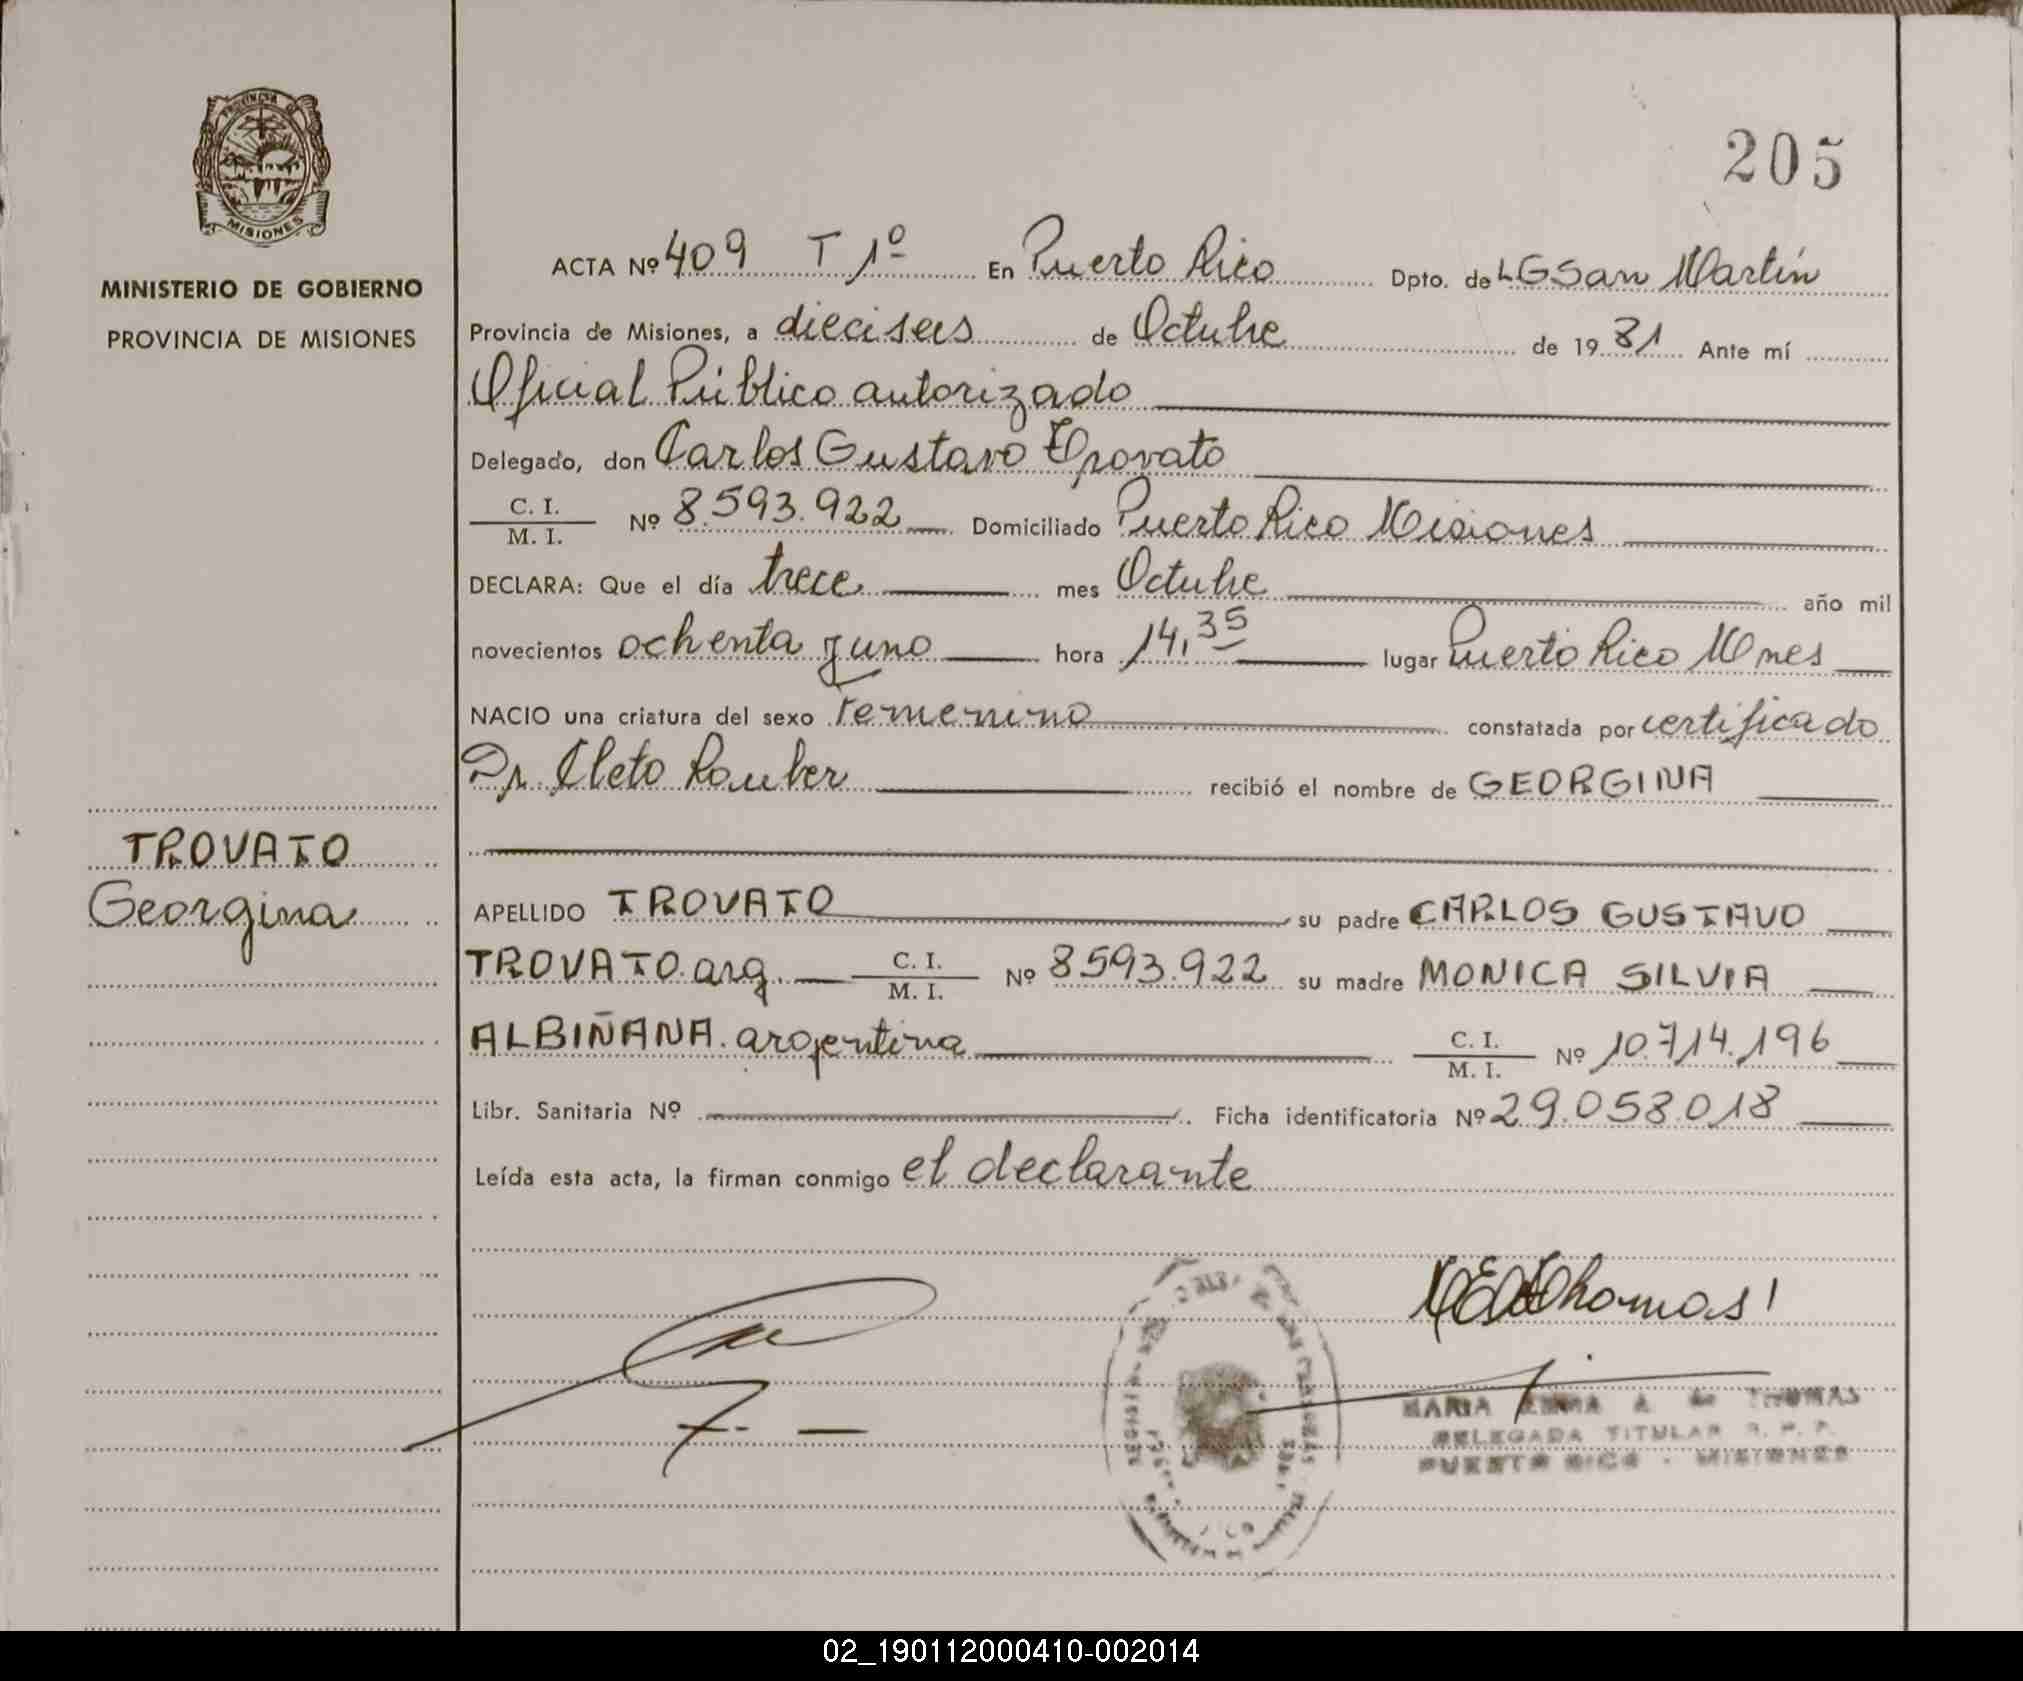 PROVINCIA DE
MISIONES
MINISTERIO DE GOBIERNO
PROVINCIA DE MISIONES
TROVATO
Georgina
205
ACTA Nº 409 T 1º En Puerto Rico Dpto. de LG San Martín
Provincia de Misiones, a dieciseis de Octubre de 1981 Ante mí
Oficial Público autorizado
Delegado, don Carlos Gustavo Trovato
C. I.
M. I. Nº 8.593.922 Domiciliado Puerto Rico Misiones
DECLARA: Que el día trece mes Octubre año mil
novecientos ochenta y uno hora 14,35 lugar Puerto Rico Mnes
NACIO una criatura del sexo Femenino constatada por certificado
Dr. Cleto Rauber recibió el nombre de GEORGINA
APELLIDO TROVATO su padre CARLOS GUSTAVO
TROVATO. arg. C. I.
M. I. Nº 8593.922 su madre MONICA SILVIA
ALBIÑANA. argentina C. I.
M. I. Nº 10.714.196
Libr. Sanitaria Nº Ficha identificatoria Nº 29.058.018
Leída esta acta, la firman conmigo el declarante
Thomas
MARIA A. de THOMAS
DELEGADA TITULAR R. P. P.
PUERTO RICO - MISIONES
02_190112000410-002014